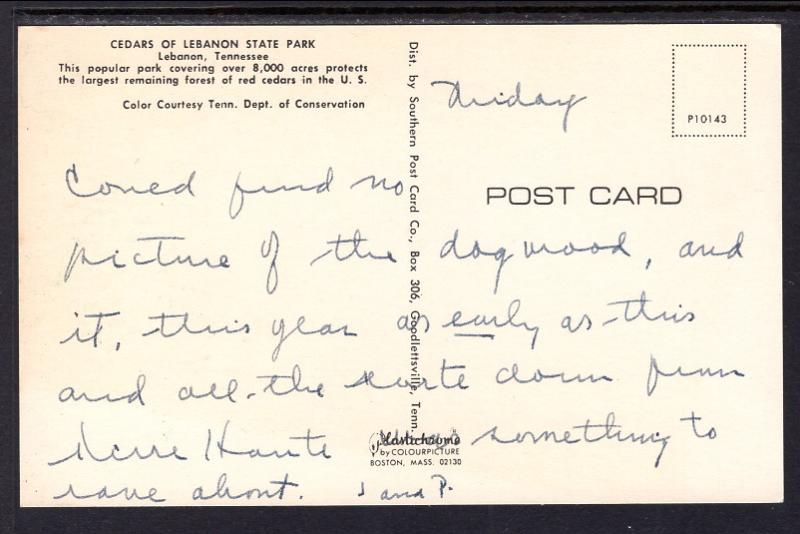 CEDARS OF LEBANON STATE PARK
Lebanon, Tennessee
This popular park covering over 8,000 acres protects
the largest remaining forest of red cedars in the U. S.
Color Courtesy Tenn. Dept. of Conservation
Dist. by Southern Post Card Co., Box 306, Goodlettsville, Tenn.
P10143
POST CARD
Friday
Coued find no
picture of the dogwood, and
it, this year as early as this
and all the route down from
Terre Haute was something to
rave about. J and P.
Plastichrome
by COLOURPICTURE
BOSTON, MASS. 02130